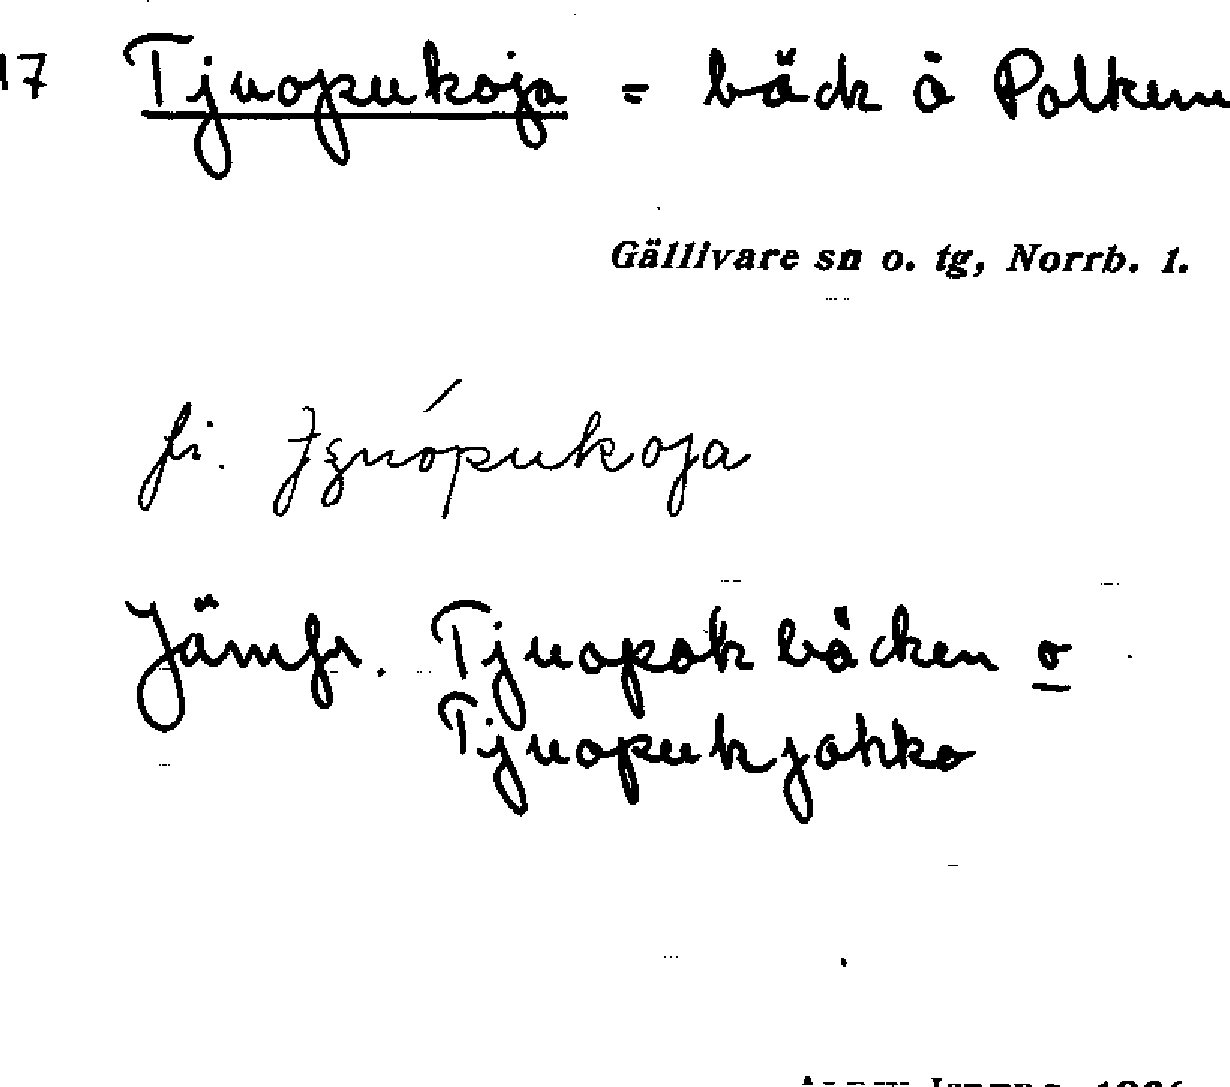 17 Tjuopukoja = bäck å Polkem
Gällivare sn o. tg, Norrb. 1.
fi.
Jämfr. Tjuopok bäcken o
Tjuopukjokko